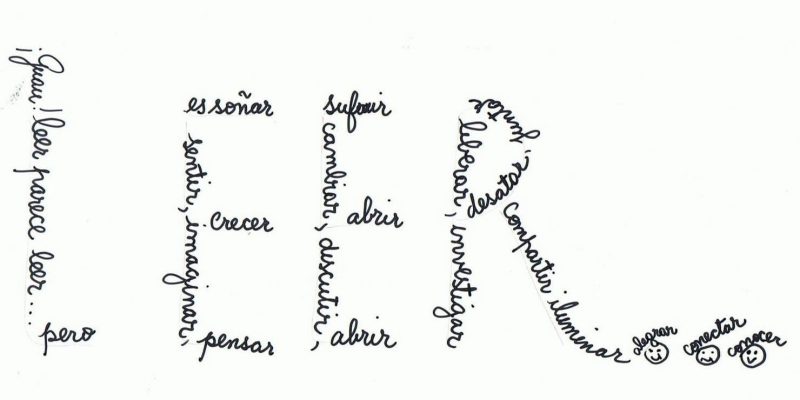 ¡Guau! leer parece leer...
pero
es soñar
sentir, imaginar,
crecer
pensar
sufrir
cambiar, discutir,
abrir
abrir
liberar, investigar
desatar,
compartir iluminar
alegrar
conectar
conocer